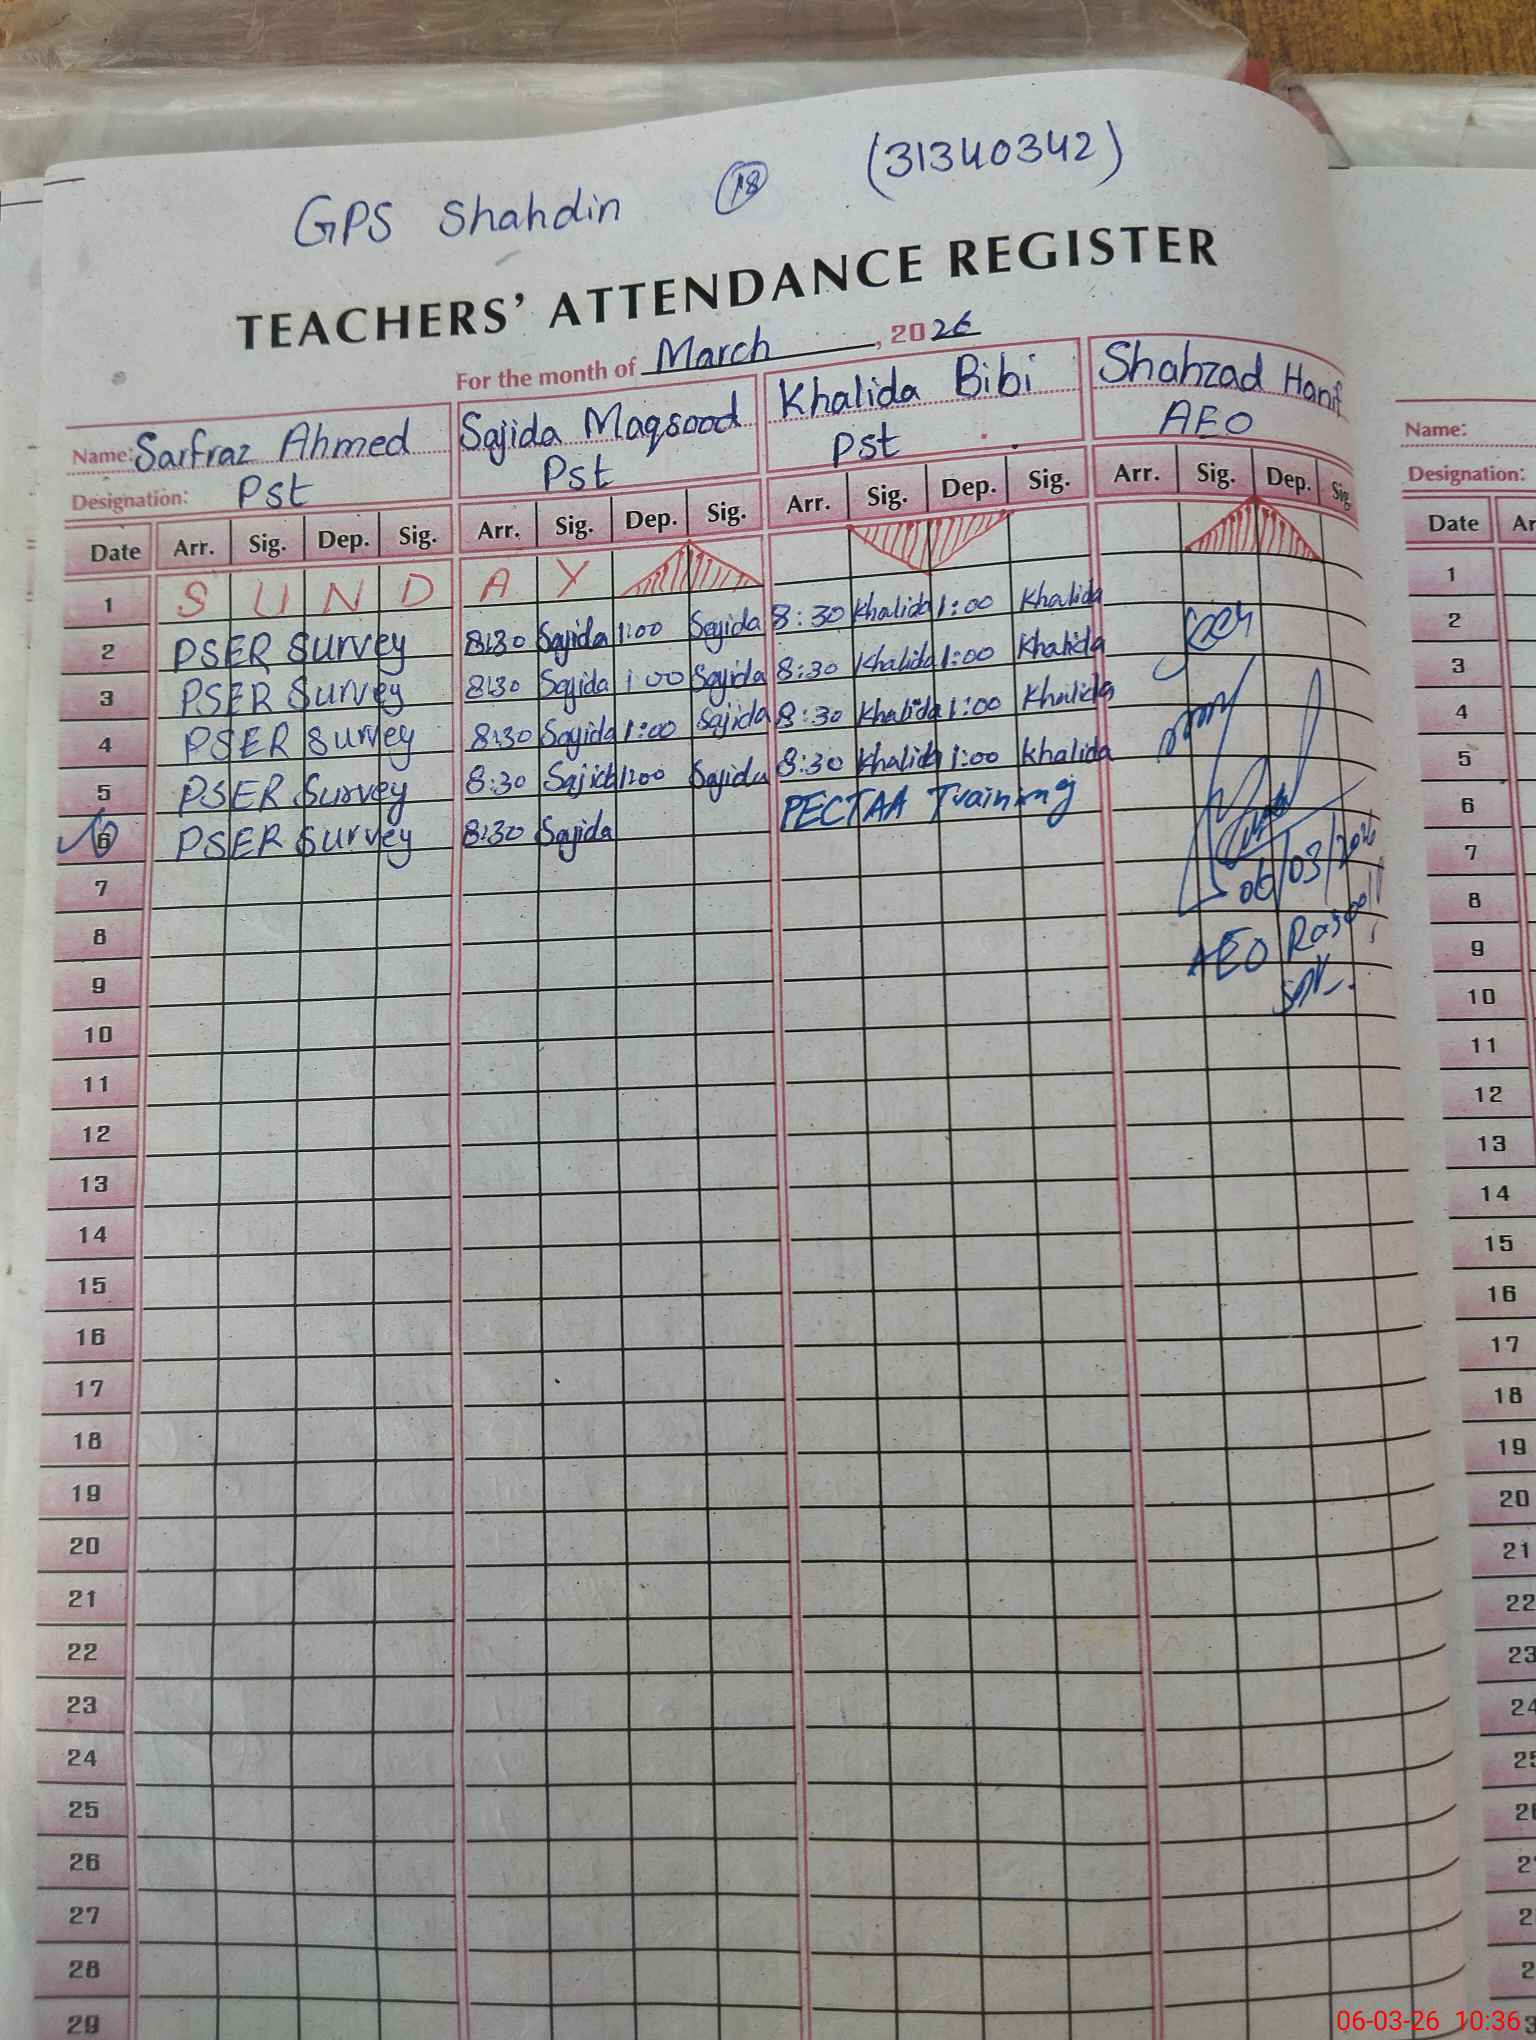 GPS Shahdin 18 (31340342)
TEACHERS' ATTENDANCE REGISTER
For the month of March, 2026
Name: Sarfraz Ahmed Sajida Maqsood Khalida Bibi Shahzad Hanif Name:
Designation: Pst Pst Pst AEO Designation:
Date Arr. Sig. Dep. Sig. Arr. Sig. Dep. Sig. Arr. Sig. Dep. Sig. Arr. Sig. Dep. Sig. Date Ar
1 S U N D A Y 1
2 PSER Survey 8:30 Sajida 1:00 Sajida 8:30 Khalida 1:00 Khalida 2
3 PSER Survey 8:30 Sajida 1:00 Sajida 8:30 Khalida 1:00 Khalida 3
4 PSER Survey 8:30 Sajida 1:00 Sajida 8:30 Khalida 1:00 Khalida 4
5 PSER Survey 8:30 Sajida 1:00 Sajida 8:30 Khalida 1:00 Khalida 5
6 PSER Survey 8:30 Sajida PECTAA Training 6
7 06/03/2026 7
8 8
9 AEO 9
10 10
11 11
12 12
13 13
14 14
15 15
16 16
17 17
18 18
19 19
20 20
21 21
22 22
23 23
24 24
25
26
27
28
29
06-03-26 10:36